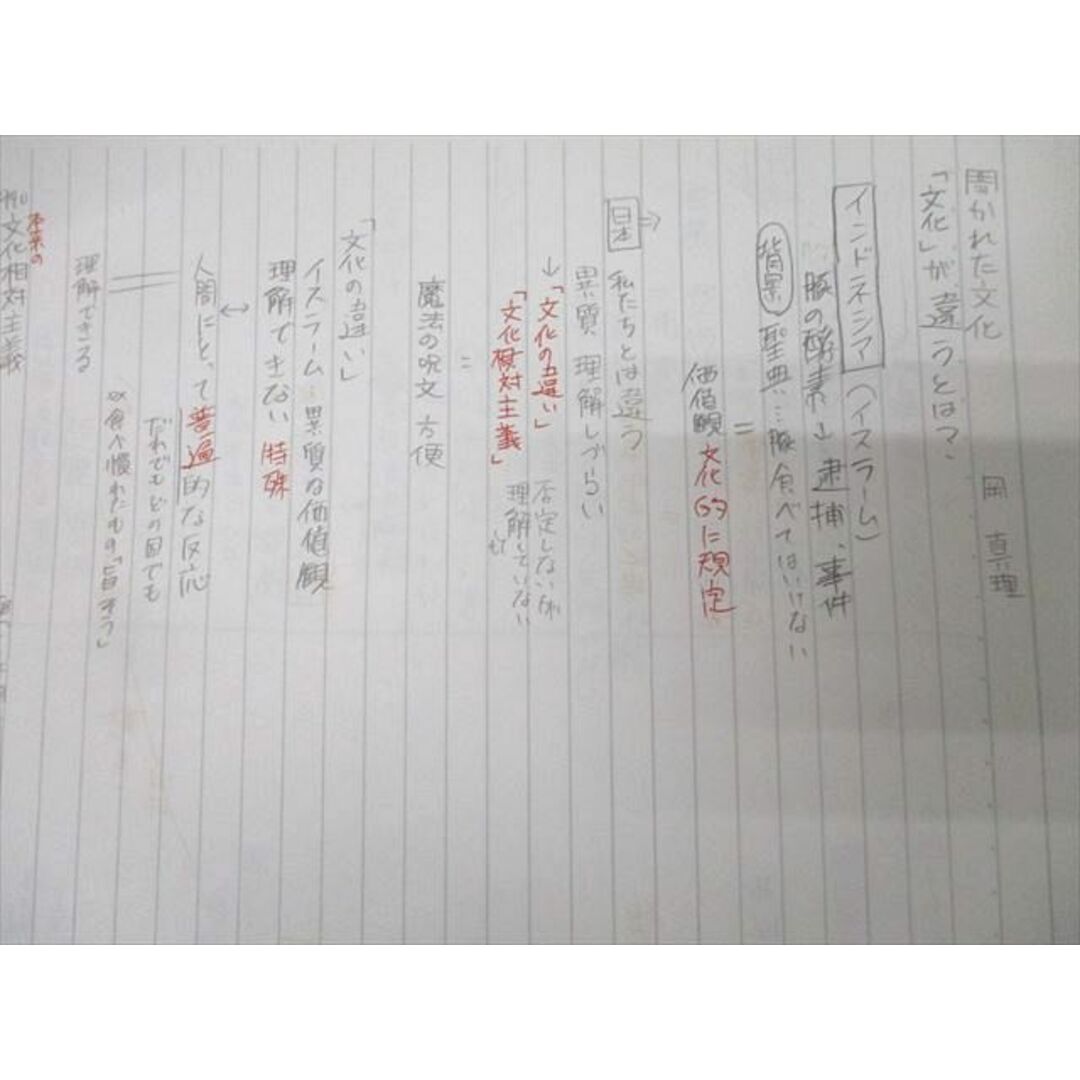 開かれた文化
岡 真理
「文化」が違うとは?
インドネシア (イスラーム)
豚の酵素→逮捕、事件
背景 聖典…豚食べてはいけない
=
価値観 文化的に規定
日本 ⇒
私たちとは違う
異質 理解しづらい
↓
「文化の違い」 否定しないが
「文化相対主義」 理解もしていない
=
魔法の呪文 方便
「文化の違い」
イスラーム…異質な価値観
理解できない 特殊
↔
人間にとって普遍的な反応
だれでもどの国でも
食べ慣れたもの「旨そう」
理解できる
本来の
文化相対主義